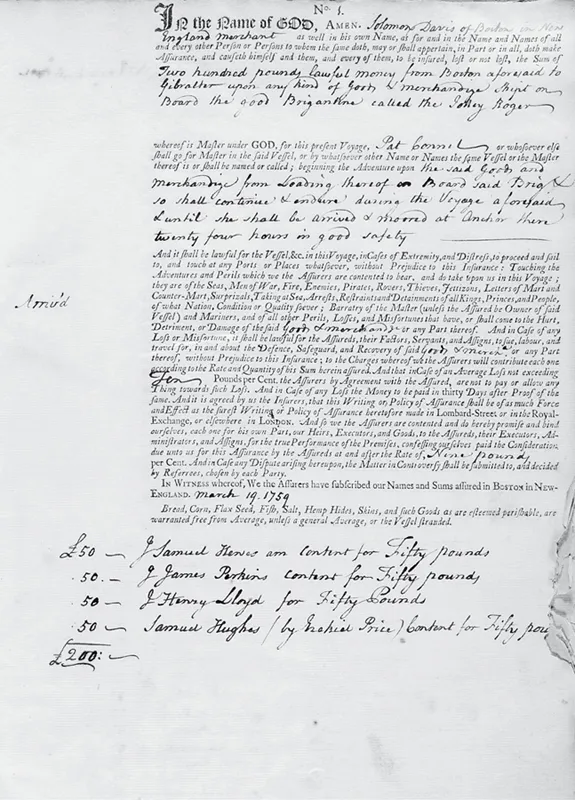 No. 1.
In the Name of GOD, AMEN. Solomon Davis of Boston in New
England merchant as well in his own Name, as for and in the Name and Names of all
and every other Person or Persons to whom the same doth, may or shall appertain, in Part or in all, doth make
Assurance, and causeth himself and them, and every of them, to be insured, lost or not lost, the Sum of
Two hundred pounds lawful money from Boston aforesaid to
Gibralter upon any kind of Goods & merchandize Shipt on
Board the good Brigantine called the Jolley Roger
whereof is Master under GOD, for this present Voyage, Pat Connel or whosoever else
shall go for Master in the said Vessel, or by whatsoever other Name or Names the same Vessel or the Master
thereof is or shall be named or called; beginning the Adventure upon the said Goods and
merchandize from Loading thereof on Board said Brig &
so shall continue & endure during the Voyage aforesaid
& until she shall be arrived & moored at Anchor there
twenty four hours in good safety
And it shall be lawful for the Vessel, &c. in this Voyage, in Cases of Extremity, and Distress, to proceed and sail
to, and touch at any Ports or Places whatsoever, without Prejudice to this Insurance: Touching the
Adventures and Perils which we the Assurers are contented to bear, and do take upon us in this Voyage;
they are of the Seas, Men of War, Fire, Enemies, Pirates, Rovers, Thieves, Jettizons, Letters of Mart and
Arriv'd
Counter-Mart, Surprizals, Taking at Sea, Arrests, Restraints and Detainments of all Kings, Princes, and People,
of what Nation, Condition or Quality soever; Barratry of the Master (unless the Assured be Owner of said
Vessel) and Mariners, and of all other Perils, Losses, and Misfortunes that have, or shall come to the Hurt,
Detriment, or Damage of the said Goods & merchandz or any Part thereof. And in Case of any
Loss or Misfortune, it shall be lawful for the Assureds, their Factors, Servants, and Assigns, to sue, labour, and
travel for, in and about the Defence, Safeguard, and Recovery of said Goods & merchz or any Part
thereof, without Prejudice to this Insurance; to the Charges whereof we the Assurers will contribute each one
according to the Rate and Quantity of his Sum herein assured. And that in Case of an Average Loss not exceeding
Ten Pounds per Cent. the Assurers by Agreement with the Assured, are not to pay or allow any
Thing towards such Loss. And in Case of any Loss the Money to be paid in thirty Days after Proof of the
same. And it is agreed by us the Insurers, that this Writing or Policy of Assurance shall be of as much Force
and Effect as the surest Writing or Policy of Assurance heretofore made in Lombard-Street or in the Royal-
Exchange, or elsewhere in LONDON. And so we the Assurers are contented and do hereby promise and bind
ourselves, each one for his own Part, our Heirs, Executors, and Goods, to the Assureds, their Executors, Ad-
ministrators, and Assigns, for the true Performance of the Premises, confessing ourselves paid the Consideration
due unto us for this Assurance by the Assureds at and after the Rate of, Nine pounds
per Cent. And in Case any Dispute arising hereupon, the Matter in Controversy shall be submitted to, and decided
by Referrees, chosen by each Party.
IN WITNESS whereof, We the Assurers have subscribed our Names and Sums assured in BOSTON in NEW-
ENGLAND. March 19. 1759
Bread, Corn, Flax Seed, Fish, Salt, Hemp Hides, Skins, and such Goods as are esteemed perishable, are
warranted free from Average, unless a general Average, or the Vessel stranded.
£50 — J Samuel Hewes am content for Fifty pounds
50. — J James Perkins content for Fifty pounds
50 — J Henry Lloyd for Fifty Pounds
50 — Samuel Hughes (by Ezekiel Price) Content for Fifty pou
£200: